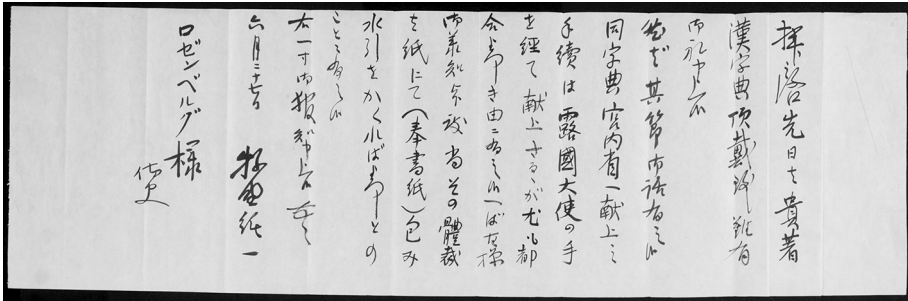 拝啓 先日は貴著
漢字典頂戴誠ニ難有
御礼申上候
然ば其節御話有之候
同字典宮内省へ献上之
手續は露國大使の手
を經て献上するが尤も都
合宜き由ニ有之候へば左様
御承知被成尚その體裁
は紙にて(奉書紙)包み
水引をかくれば宜しとの
ことに有之候
右一寸御報知申上候 草々
六月二十七日 一
ロゼンベルグ様
侍史